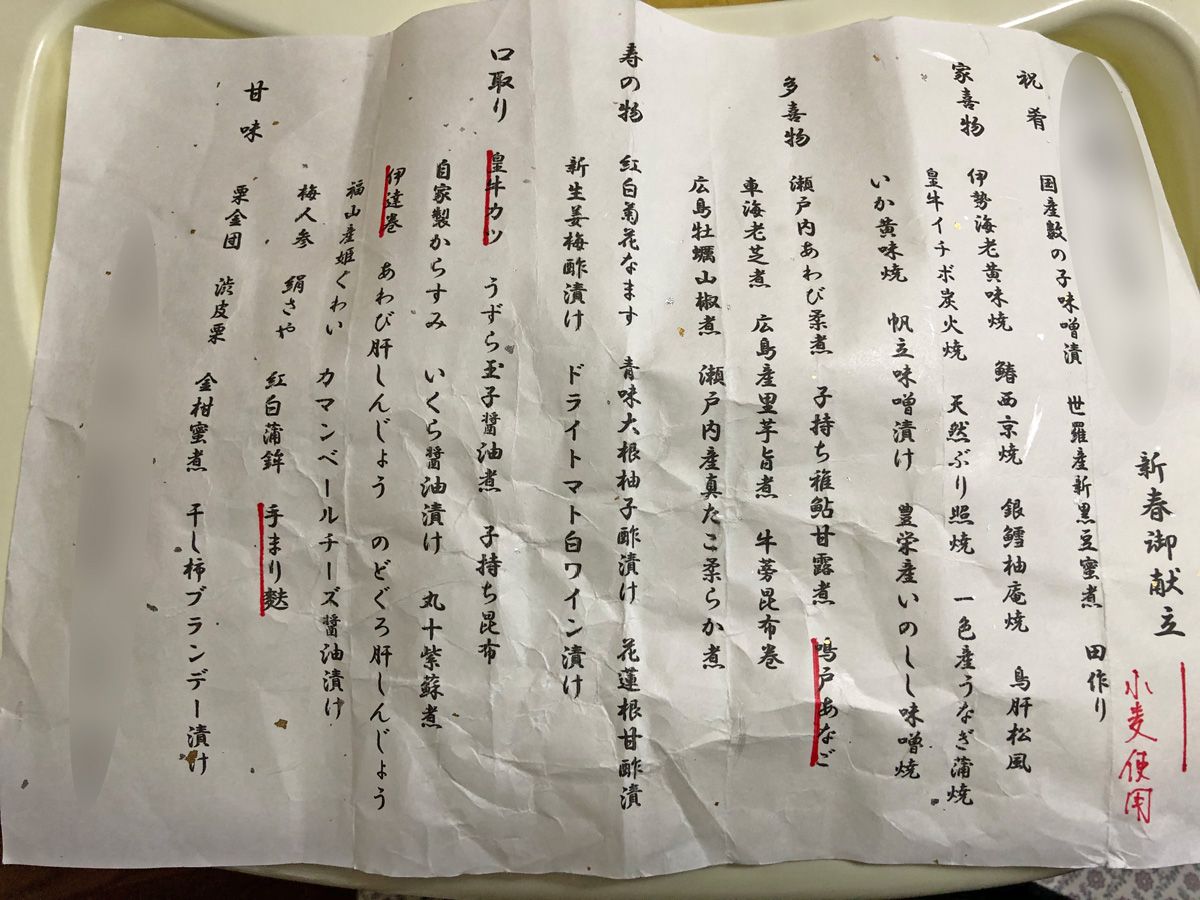 新春御献立
小麦使用
祝肴
国産数の子味噌漬 世羅産新黒豆蜜煮 田作り
家喜物
伊勢海老黄味焼 鰆西京焼 銀鱈柚庵焼 鳥肝松風
皇牛イチボ炭火焼 天然ぶり照焼 一色産うなぎ蒲焼
いか黄味焼 帆立味噌漬け 豊栄産いのしし味噌焼
多喜物
瀬戸内あわび柔煮 子持ち稚鮎甘露煮 鳴戸あなご
車海老芝煮 広島産里芋旨煮 牛蒡昆布巻
広島牡蠣山椒煮 瀬戸内産真たこ柔らか煮
寿の物
紅白菊花なます 青味大根柚子酢漬け 花蓮根甘酢漬
新生姜梅酢漬け ドライトマト白ワイン漬け
口取り
皇牛カツ うずら玉子醤油煮 子持ち昆布
自家製からすみ いくら醤油漬け 丸十紫蘇煮
伊達巻 あわび肝しんじょう のどぐろ肝しんじょう
福山産姫ぐわい カマンベールチーズ醤油漬け
梅人参 絹さや 紅白蒲鉾 手まり麩
甘味
栗金団 渋皮栗 金柑蜜煮 干し柿ブランデー漬け